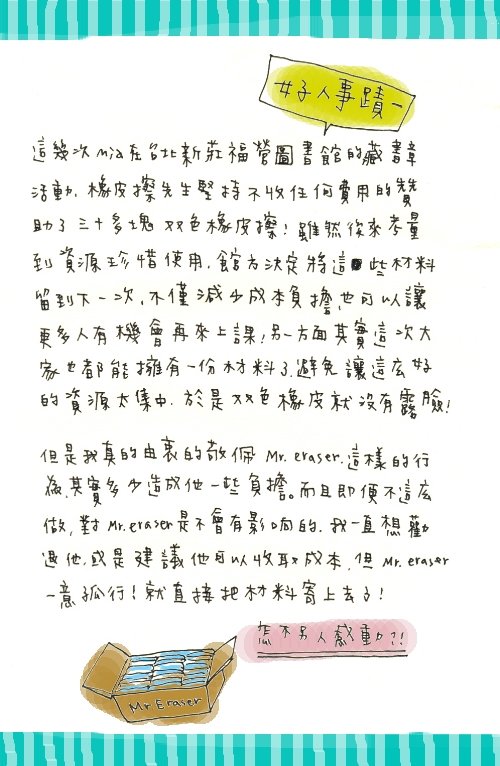 好人事蹟一
這幾次mia在台北新莊福營圖書館的藏書章
活動, 橡皮擦先生堅持不收任何費用的贊
助了三十多塊双色橡皮擦! 雖然後來考量
到資源珍惜使用, 館方決定將這些材料
留到下一次, 不僅減少成本負擔, 也可以讓
更多人有機會再來上課! 另一方面其實這次大
家也都能擁有一份材料了, 避免讓這広好
的資源太集中, 於是双色橡皮就沒有露臉!
但是我真的由衷的敬佩 Mr. eraser, 這樣的行
為, 其實多少造成他一些負擔。而且即便不這広
做, 對Mr.eraser是不會有影响的, 我一直想勸
退他, 或是建議他可以收取成本, 但Mr.eraser
一意孤行! 就直接把材料寄上去了!
怎不另人感動?!
Mr Eraser